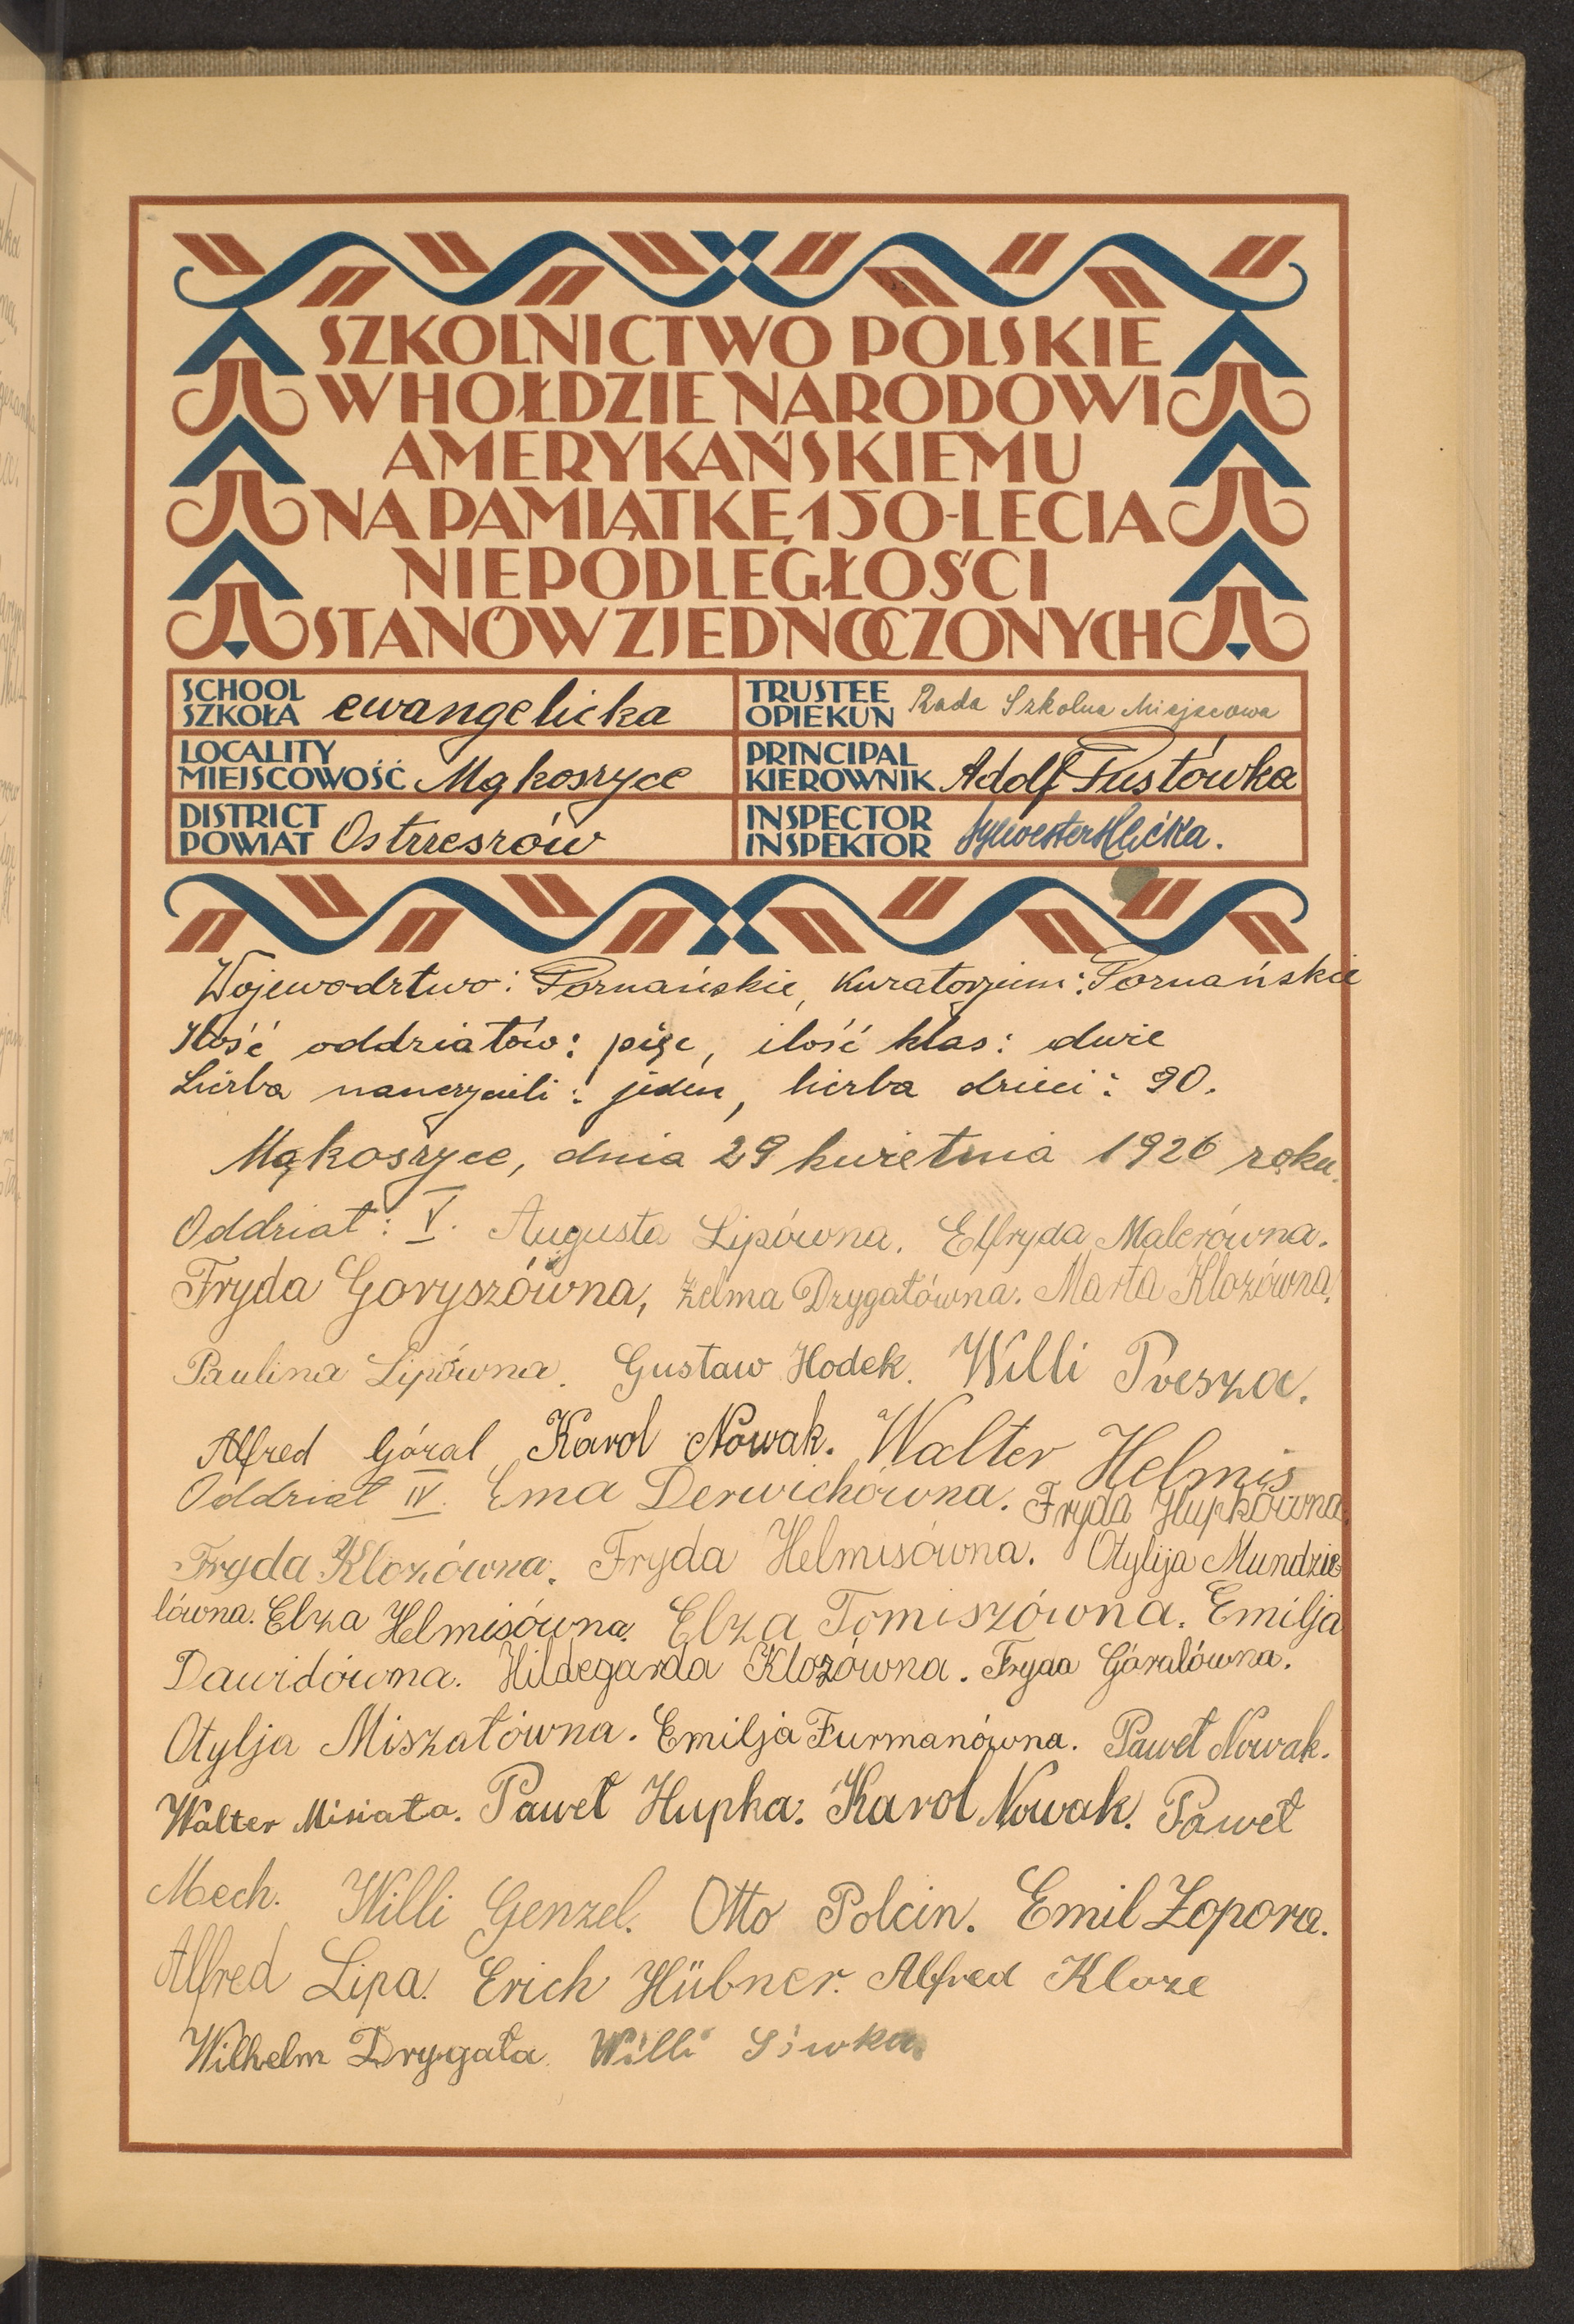 SZKOLNICTWO POLSKIE
W HOŁDZIE NARODOWI
AMERYKAŃSKIEMU
NA PAMIĄTKĘ 150-LECIA
NIEPODLEGŁOŚCI
STANÓW ZJEDNOCZONYCH
SCHOOL SZKOŁA ewangelicka
TRUSTEE OPIEKUN Rada Szkolna Miejscowa
LOCALITY MIEJSCOWOŚĆ Mąkoszyce
PRINCIPAL KIEROWNIK Adolf Pustówka
DISTRICT POWIAT Ostrzeszów
INSPECTOR INSPEKTOR Sylwester
Województwo: Poznańskie, Kuratorjum: Poznańskie
Ilość oddziałów: pięć, ilość klas: dwie
Liczba nauczycieli: jeden, liczba dzieci: 90.
Mąkoszyce, dnia 29 kwietnia 1926 roku.
Oddział: V. Augusta Lipówna. Elfryda Malerówna.
Fryda Goryszówna, Zelma Drygałówna. Marta Klozówna,
Paulina Lipówna. Gustaw Hodek. Willi Puesza.
Alfred Góral, Karol Nowak. Walter Helmis
Oddział IV. Ema Derwichówna. Fryda Hupkówna.
Fryda Klozówna. Fryda Helmisówna. Otylija Mundzie
lówna. Elza Helmisówna. Elza Tomiszówna. Emilja
Dawidówna. Hildegarda Klozówna. Fryda Góralówna.
Otylja Miszałówna. Emilja Furmanówna. Paweł Nowak.
Walter Misiała. Paweł Hupka. Karol Nowak. Paweł
Mech. Willi Genzel. Otto Polcin. Emil Zopora.
Alfred Lipa. Erich Hübner. Alfred Kloze
Wilhelm Drygała. Willi Siwka.